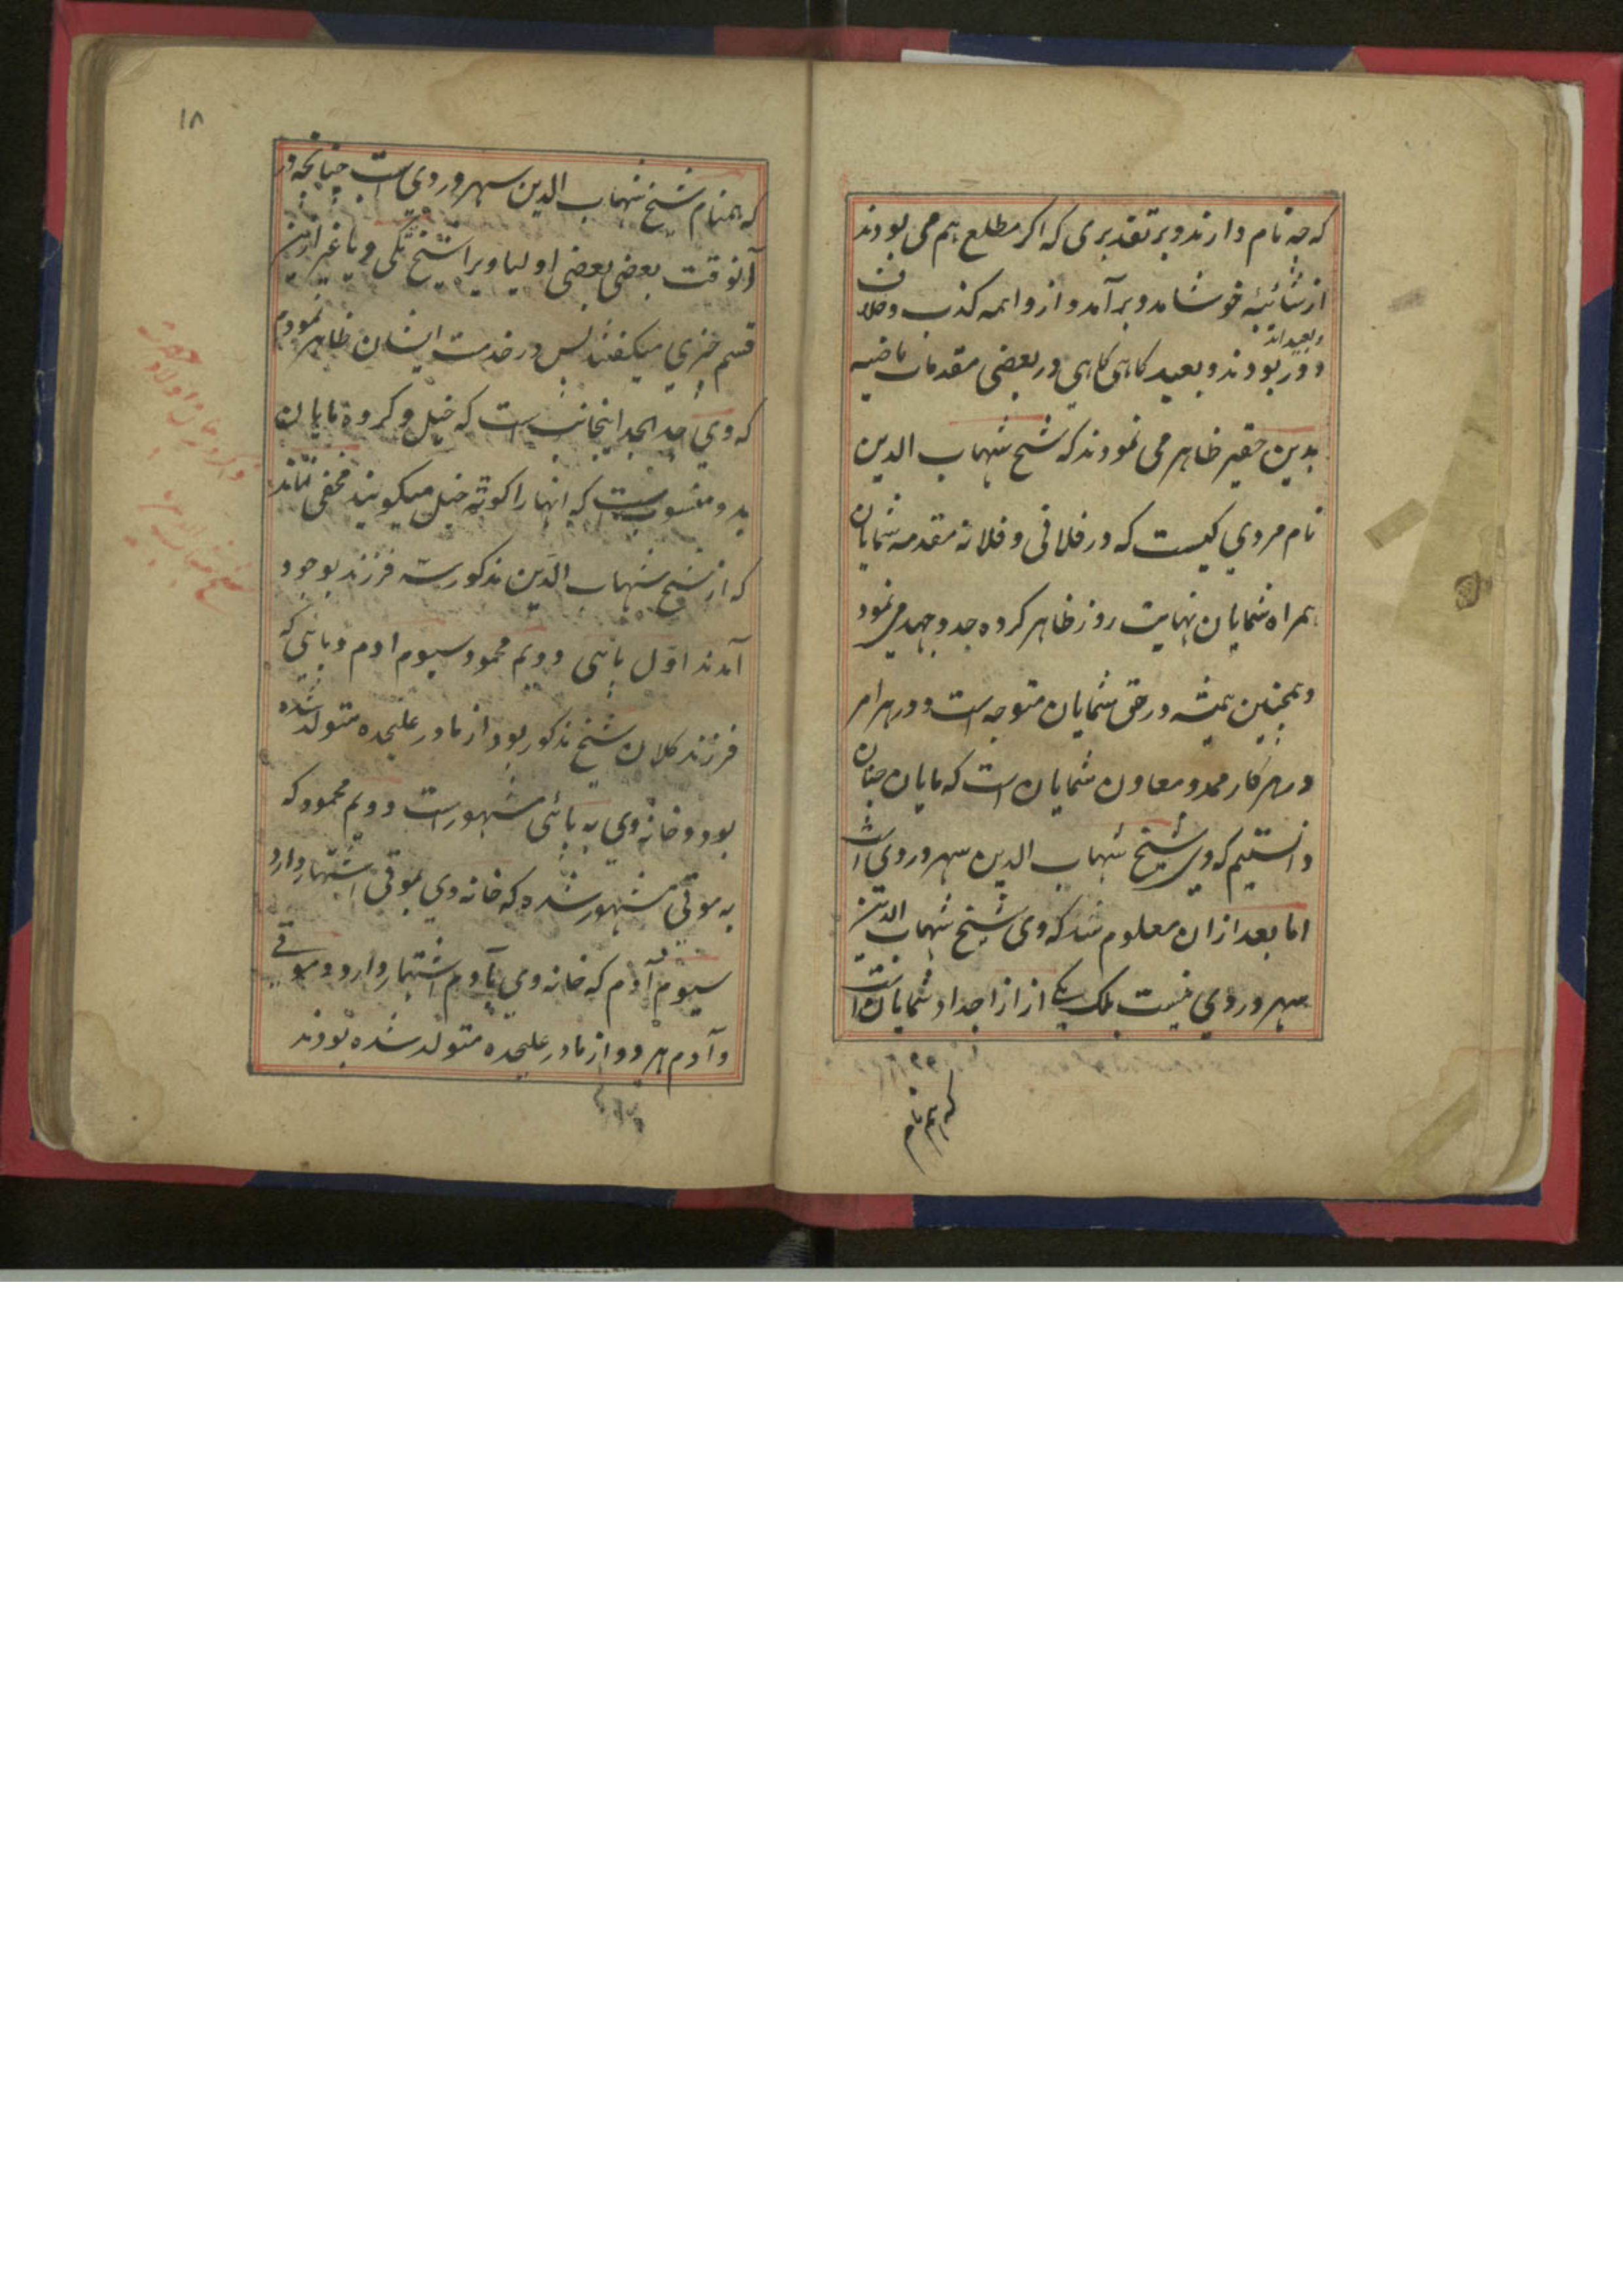 که چه نام دارند و بر تقدیری که اکر مطلع هم می بودند
از شائبه خوشامد و برآمد و از واهمه کذب و خلاف
دور بودند و بعید کاهی کاهی در بعضی مقدمات ماضیه
بدین حقیر ظاهر می نمودند که شیخ شهاب الدین
نام مردی کیست که در فلانی و فلانه مقدمه شمایان
همراه شمایان نهایت روز ظاهر کرده جد و جهد می نمود
و همچنین همیشه در حق شمایان متوجه است و در هر امر
در هر کار ممد و معاون شمایان است که مایان چنان
دانستیم که وی شیخ شهاب الدین سهروردی است
اما بعد از ان معلوم شد که وی شیخ شهاب الدین
سهروردی نیست بلک یکے از از اجداد شمایان است
که هم نام
۱۸
که همنام شیخ شهاب الدین سهروردی است چنانچه در
آنوقت بعضی بعضی اولیا ویرا شیخ تکی و یا غیر ازین
قسم چیزی میکفتند پس در خدمت ایشان ظاهر نمودم
که وی جد الجد اینجانب است که خیل و کروه مایان
بدو منسوبست که انها را کوته خیل میکویند مخفی نماند
که از شیخ شهاب الدین مذکور سه فرزند بوجود
آمدند اول پائی دویم محمود سیوم ادم و پائی که
فرزند کلان شیخ مذکور بود از مادر علیحده متولد شده
بود و خانه وی به پائی مشهور است دویم محمود که
به موتی مشهور شده که خانه وی بموتی اشتهار دارد
سیوم آدم که خانه وی بآدم اشتهار دارد و موتے
و آدم هر دو از مادر علیحده متولد شده بودند